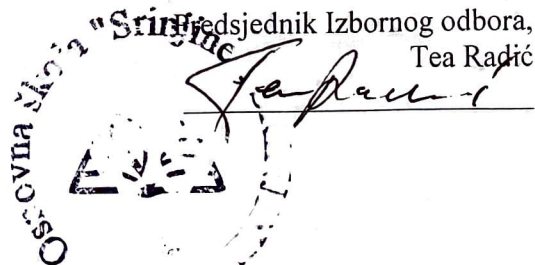 Predsjednik Izbornog odbora,
Tea Radić
Tea Radić
Osnovna škola "Srinjine